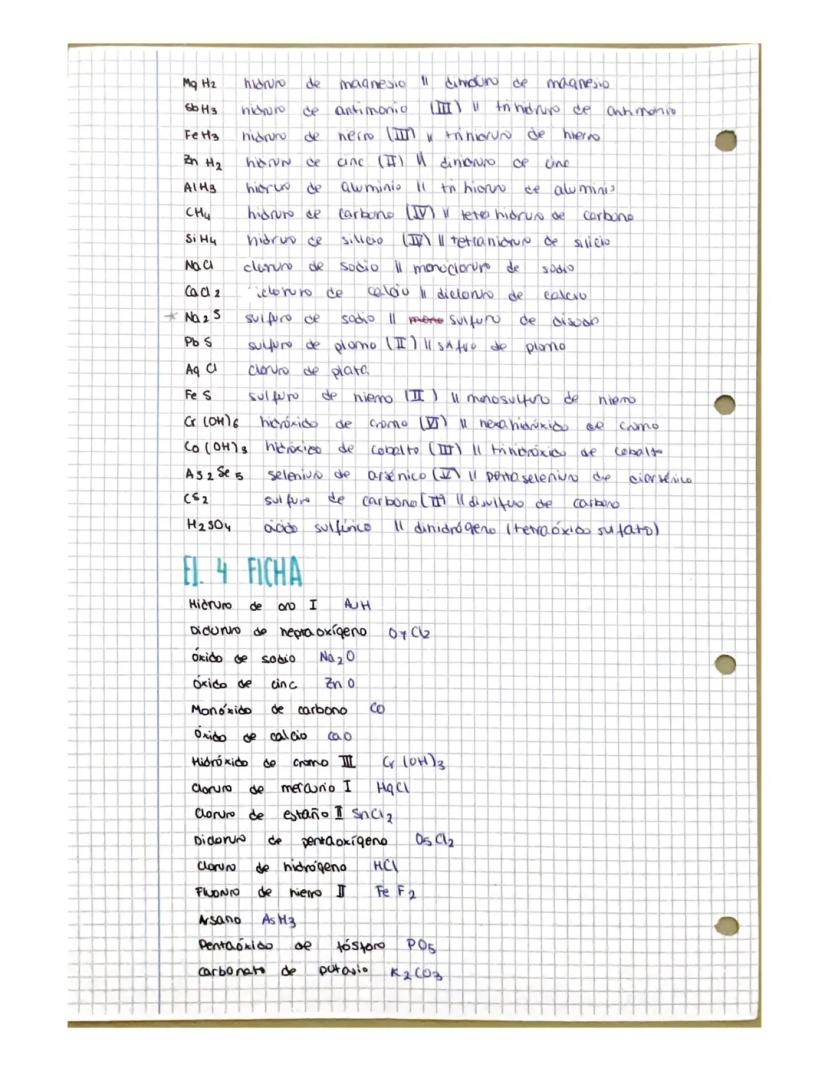 MgH2 hidruro de magnesio || dihidruro de magnesio
SbH3 hidruro de antimonio (III) || trihidruro de antimonio
FeH3 hidruro de hierro (III) || trihidruro de hierro
ZnH2 hidruro de cinc (II) || dihidruro de cinc
AlH3 hidruro de aluminio || trihidruro de aluminio
CH4 hidruro de carbono (IV) || tetrahidruro de carbono
SiH4 hidruro de silicio (IV) || tetrahidruro de silicio
NaCl cloruro de sodio || monocloruro de sodio
CaCl2 cloruro de calcio || dicloruro de calcio
* Na2S sulfuro de sodio || mono sulfuro de disodio
PbS sulfuro de plomo (II) || sulfuro de plomo
AgCl cloruro de plata
FeS sulfuro de hierro (II) || monosulfuro de hierro
Cr(OH)6 hidróxido de cromo (VI) || hexahidróxido de cromo
Co(OH)3 hidróxido de cobalto (III) || trihidróxido de cobalto
As2Se5 seleniuro de arsénico (V) || pentaseleniuro de diarsénico
CS2 sulfuro de carbono || disulfuro de carbono
H2SO4 ácido sulfúrico || dihidrógeno (tetraóxido sulfato)
EJ. 4 FICHA
Hidruro de oro I AuH
Dicloruro de heptaoxígeno O7Cl2
Óxido de sodio Na2O
Óxido de cinc ZnO
Monóxido de carbono CO
Óxido de calcio CaO
Hidróxido de cromo III Cr(OH)3
Cloruro de mercurio I HgCl
Cloruro de estaño II SnCl2
Dicloruro de pentaoxígeno O5Cl2
Cloruro de hidrógeno HCl
Fluoruro de hierro II FeF2
Arsano AsH3
Pentaóxido de fósforo PO5
Carbonato de potasio K2CO3